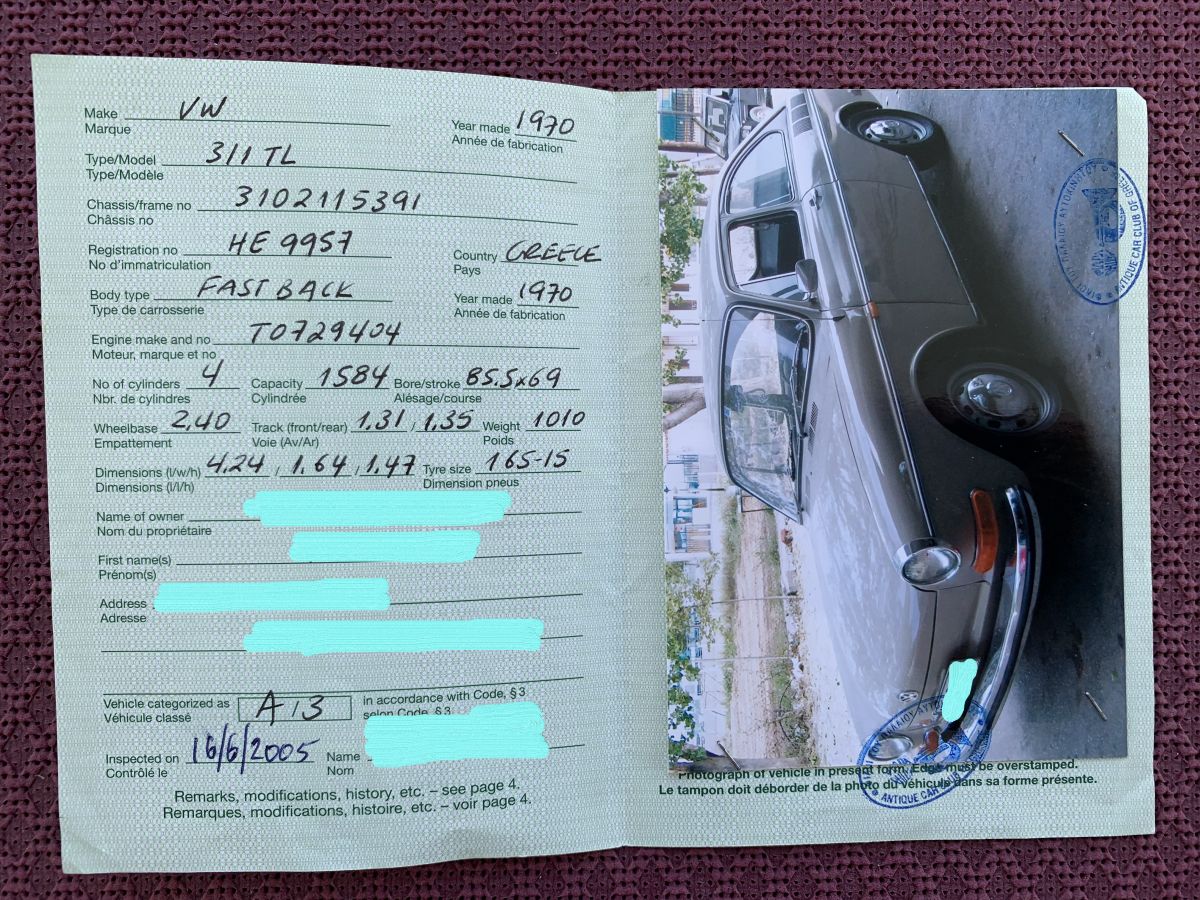 Make VW
Marque
Year made 1970
Année de fabrication
Type/Model 311 TL
Type/Modèle
Chassis/frame no 3102115391
Châssis no
Registration no HE 9957
No d'immatriculation
Country GREECE
Pays
Body type FAST BACK
Type de carrosserie
Year made 1970
Année de fabrication
Engine make and no T0729404
Moteur, marque et no
No of cylinders 4 Capacity 1584 Bore/stroke 85.5x69
Nbr. de cylindres Cylindrée Alésage/course
Wheelbase 2.40 Track (front/rear) 1.31 / 1.35 Weight 1010
Empattement Voie (Av/Ar) Poids
Dimensions (l/w/h) 4.24 / 1.64 / 1.47 Tyre size 165-15
Dimensions (l/l/h) Dimension pneus
Name of owner
Nom du propriétaire
First name(s)
Prénom(s)
Address
Adresse
Vehicle categorized as A/3 in accordance with Code, § 3
Véhicule classé selon Code, § 3
Inspected on 16/6/2005 Name
Contrôlé le Nom
Remarks, modifications, history, etc. – see page 4.
Remarques, modifications, histoire, etc. – voir page 4.
ΑΥΤΟΚΙΝΗΤΟΥ
ANTIQUE CAR CLUB OF GREE
Photograph of vehicle in present form. Edge must be overstamped.
Le tampon doit déborder de la photo du véhicule dans sa forme présente.
ANTIQUE CAR CLUB